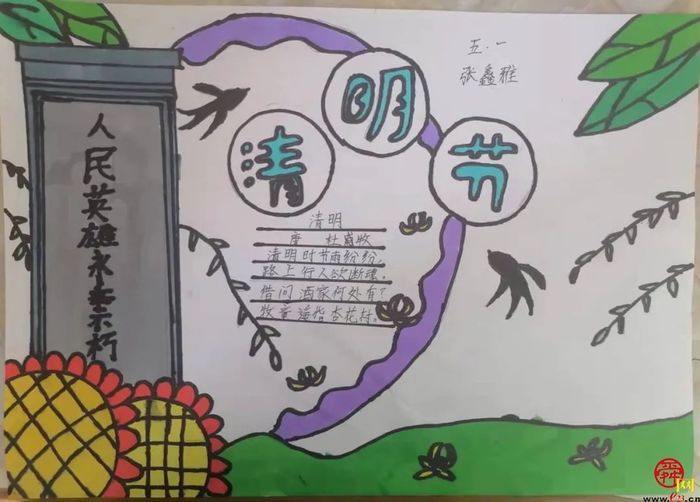 五.一
张鑫雅
清明节
人民英雄永垂不朽
清明
唐 杜牧
清明时节雨纷纷,
路上行人欲断魂。
借问酒家何处有?
牧童遥指杏花村。